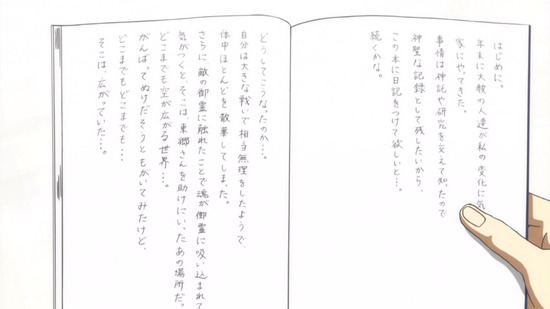 はじめに。
年末に大赦の人達が私の変化に気
家にやってきた。
事情は神託や研究を交えて知ったので
神聖な記録として残したいから、
この本に日記をつけて欲しいと…。
続くかな。
どうしてこうなったのか…。
自分は大きな戦いで相当無理をしたようで、
体中ほとんどを散華してしまった。
さらに敵の御霊に触れたことで魂が御霊に吸い込まれて
気がつくと、そこは東郷さんを助けにいったあの場所だっ
どこまでも空が広がる世界…。
がんばってぬけだそうともがいてみたけど、
どこまでもどこまでも…
そこは、広がっていた…。